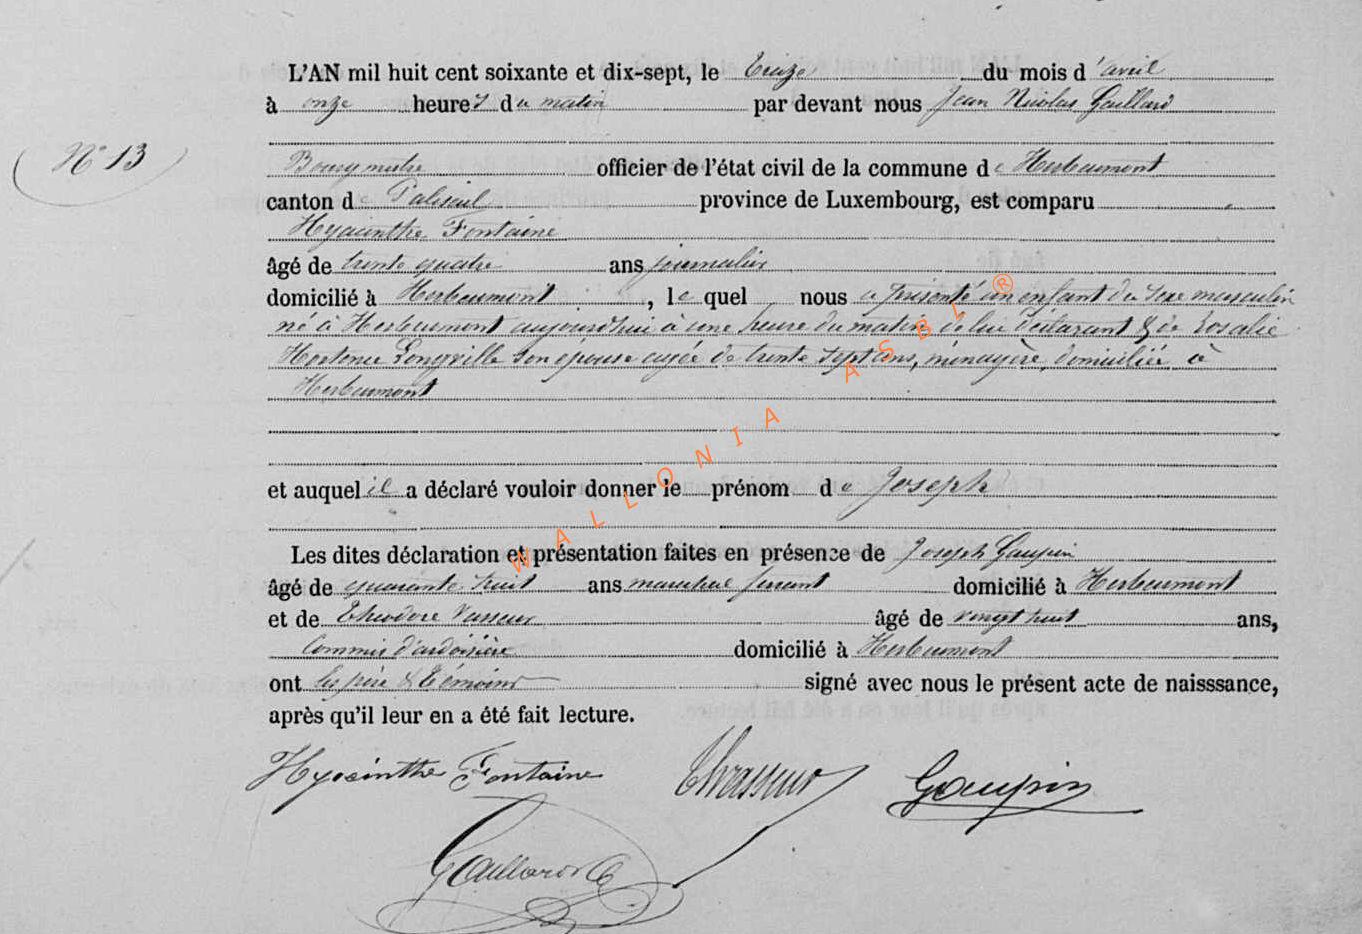 L'AN mil huit cent soixante et dix-sept, le treize du mois d'avril
à onze heures du matin par devant nous Jean Nicolas Gaillard
N° 13
Bourgmestre officier de l'état civil de la commune de Herbeumont
canton de Paliseul province de Luxembourg, est comparu
Hyacinthe Fontaine
âgé de trente quatre ans journalier
domicilié à Herbeumont, lequel nous a présenté un enfant du sexe masculin
né à Herbeumont aujourd'hui à une heure du matin de lui déclarant & de Rosalie
Hortence Longville son épouse agée de trente sept ans, ménagère, domiciliée à
Herbeumont
et auquel il a déclaré vouloir donner le prénom de Joseph
Les dites déclaration et présentation faites en présence de Joseph Gaupin
âgé de quarante huit ans marechal ferrant domicilié à Herbeumont
et de Théodore Vasseur âgé de vingt huit ans,
Commis d'ardoisière domicilié à Herbeumont
ont les père & témoins signé avec nous le présent acte de naisssance,
après qu'il leur en a été fait lecture.
Hyacinthe Fontaine Th Vasseur Gaupin
Gaillard
WALLONIA ASBL ®